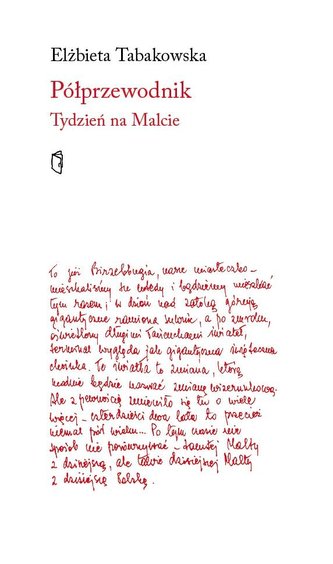 Elżbieta Tabakowska
Półprzewodnik
Tydzień na Malcie
To jest Birzebbugia, nasze miasteczko –
mieszkaliśmy tu wtedy i będziemy mieszkać
tym razem; w dzień nad zatoką górują
gigantyczne ramiona suwnic, a po zmroku,
oświetlony długimi łańcuchami świateł,
terminal wygląda jak gigantyczna świąteczna
choinka. Te światła to zmiana, którą
modnie będzie nazwać zmianą wizerunkową.
Ale z pewnością zmieniło się tu o wiele
więcej – czterdzieści dwa lata to przecież
niemal pół wieku... Po tym czasie nie
sposób nie porównywać – dawnej Malty
z dzisiejszą, ale także dzisiejszej Malty
z dzisiejszą Polską.